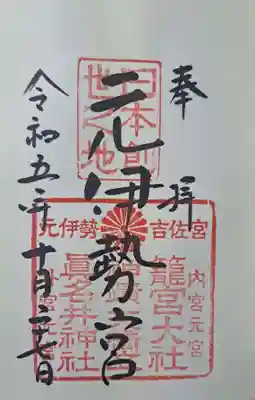 奉拝
日本創
世之地
元伊勢宮
元伊勢 吉佐宮
内宮元宮
籠宮大社
眞名井神社
令和五年十月